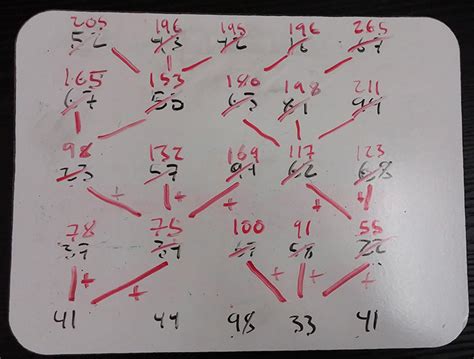 205 196 195 196 265
52 43 42 16 67
165 153 180 198 211
67 55 63 81 94
98 132 169 117 123
23 57 94 62 68
+ + + + +
78 75 100 91 55
37 34 67 58 22
+ + + + +
41 44 98 33 41